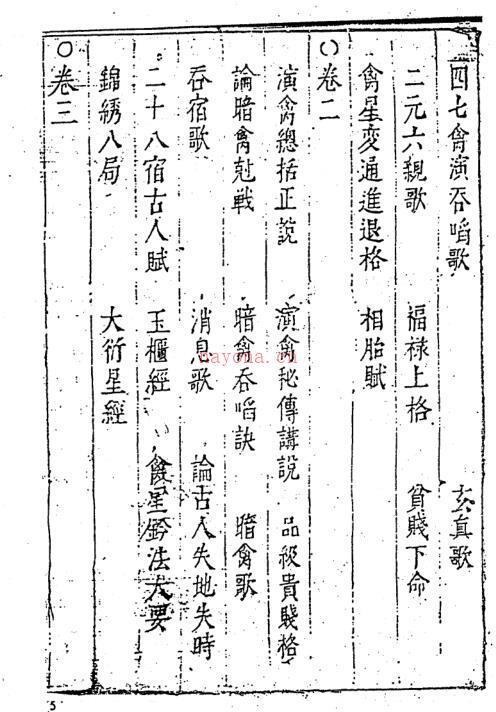 四七禽演吞啗歌 玄真歌
二元六親歌 福祿上格 貧賤下命
禽星变通進退格 相胎賦
○卷二
演禽總括正説 演禽秘傳講説 品級貴賤格
論暗禽尅戰 暗禽吞啗訣 暗禽歌
吞宿歌 消息歌 論古人失地失時
二十八宿古人賦 玉櫃經 禽星鈐法大要
錦綉八局 大衍星經
○卷三
nayona.cn
5